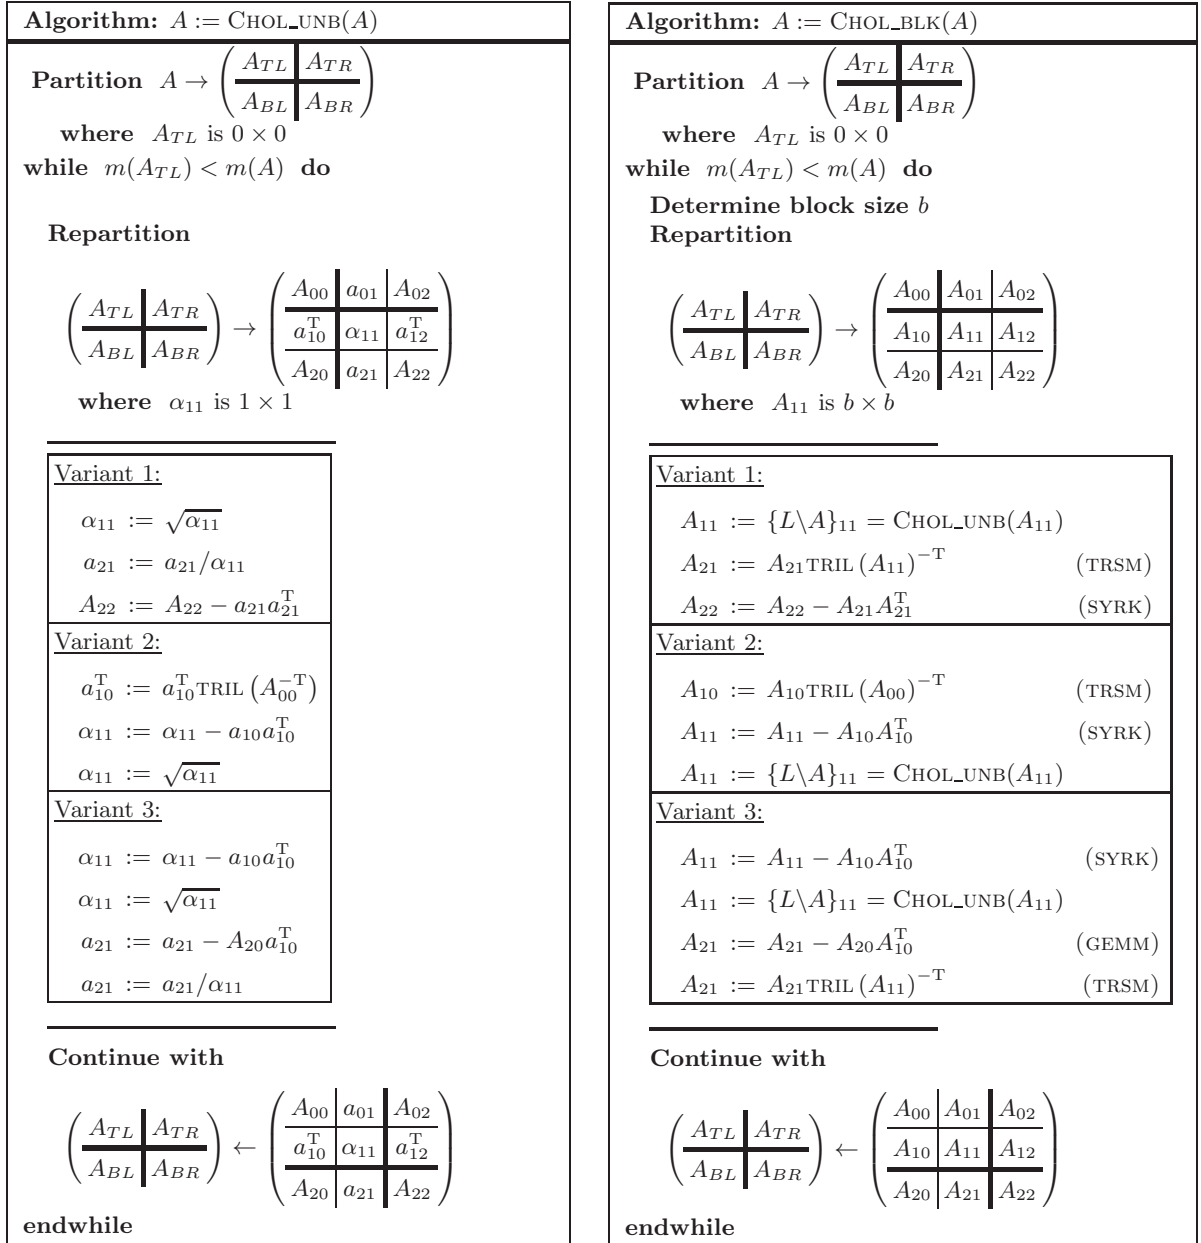 Algorithm: A := CHOL_UNB(A)
Partition A → ( A_TL | A_TR
A_BL | A_BR )
where A_TL is 0 × 0
while m(A_TL) < m(A) do
Repartition
( A_TL | A_TR
A_BL | A_BR ) → ( A_00 | a_01 | A_02
a_10^T | α_11 | a_12^T
A_20 | a_21 | A_22 )
where α_11 is 1 × 1
Variant 1:
α_11 := √α_11
a_21 := a_21/α_11
A_22 := A_22 − a_21 a_21^T
Variant 2:
a_10^T := a_10^T TRIL (A_00^−T)
α_11 := α_11 − a_10 a_10^T
α_11 := √α_11
Variant 3:
α_11 := α_11 − a_10 a_10^T
α_11 := √α_11
a_21 := a_21 − A_20 a_10^T
a_21 := a_21/α_11
Continue with
( A_TL | A_TR
A_BL | A_BR ) ← ( A_00 | a_01 | A_02
a_10^T | α_11 | a_12^T
A_20 | a_21 | A_22 )
endwhile
Algorithm: A := CHOL_BLK(A)
Partition A → ( A_TL | A_TR
A_BL | A_BR )
where A_TL is 0 × 0
while m(A_TL) < m(A) do
Determine block size b
Repartition
( A_TL | A_TR
A_BL | A_BR ) → ( A_00 | A_01 | A_02
A_10 | A_11 | A_12
A_20 | A_21 | A_22 )
where A_11 is b × b
Variant 1:
A_11 := {L\A}_11 = CHOL_UNB(A_11)
A_21 := A_21 TRIL (A_11)^−T (TRSM)
A_22 := A_22 − A_21 A_21^T (SYRK)
Variant 2:
A_10 := A_10 TRIL (A_00)^−T (TRSM)
A_11 := A_11 − A_10 A_10^T (SYRK)
A_11 := {L\A}_11 = CHOL_UNB(A_11)
Variant 3:
A_11 := A_11 − A_10 A_10^T (SYRK)
A_11 := {L\A}_11 = CHOL_UNB(A_11)
A_21 := A_21 − A_20 A_10^T (GEMM)
A_21 := A_21 TRIL (A_11)^−T (TRSM)
Continue with
( A_TL | A_TR
A_BL | A_BR ) ← ( A_00 | A_01 | A_02
A_10 | A_11 | A_12
A_20 | A_21 | A_22 )
endwhile